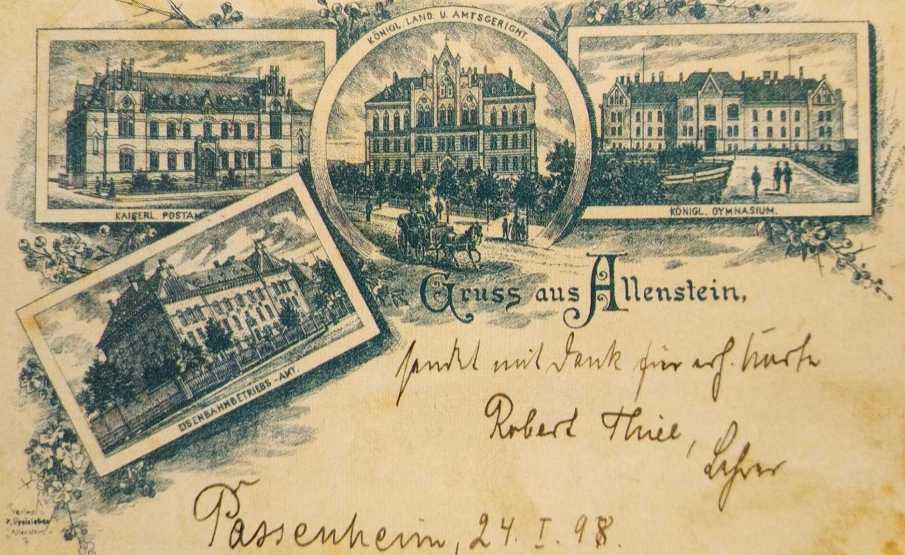 KÖNIGL. LAND. U. AMTSGERICHT.
KAISERL. POSTAMT
KÖNIGL. GYMNASIUM.
EISENBAHNBETRIEBS-AMT.
Gruss aus Allenstein,
sendet mit Dank für erh. Karte
Robert Thiel,
Lehrer
Passenheim, 24. I. 98.
Verlag
Allenstein